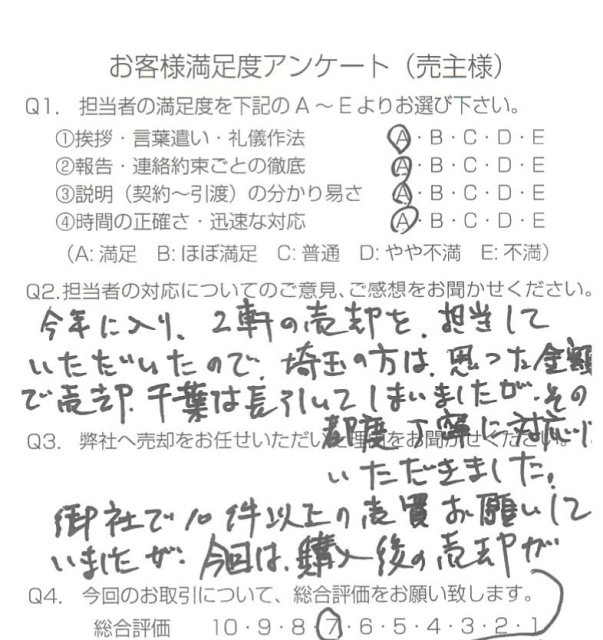 お客様満足度アンケート（売主様）
Q1. 担当者の満足度を下記のA～Eよりお選び下さい。
①挨拶・言葉遣い・礼儀作法 A・B・C・D・E
②報告・連絡約束ごとの徹底 A・B・C・D・E
③説明（契約～引渡）の分かり易さ A・B・C・D・E
④時間の正確さ・迅速な対応 A・B・C・D・E
（A:満足 B:ほぼ満足 C:普通 D:やや不満 E:不満）
Q2.担当者の対応についてのご意見、ご感想をお聞かせください。
今年に入り、2軒の売却を、担当して
いただいたので、埼玉の方は、思った金額
で売却、千葉は長引いてしまいましたが、その
都度、丁寧に対応
Q3. 弊社へ売却をお任せいただいた理由をお聞かせください。
いただきました。
御社で10件以上の売買お願いして
いましたが、今回は、購入後の売却が
Q4. 今回のお取引について、総合評価をお願い致します。
総合評価 10・9・8・7・6・5・4・3・2・1